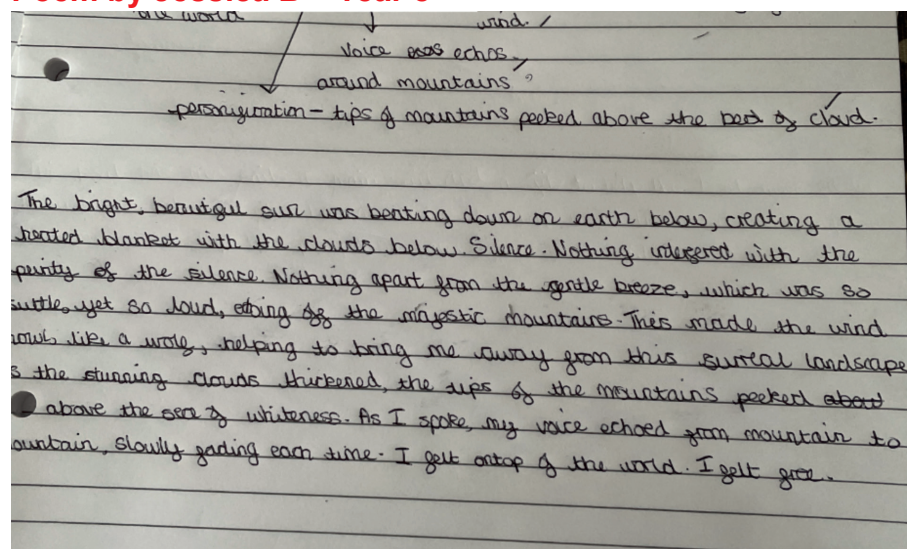 the world
wind.
Voice echos
around mountains
personification - tips of mountains peeked above the bed of cloud.
The bright, beautiful sun was beating down on earth below, creating a
heated blanket with the clouds below. Silence. Nothing interfered with the
purity of the silence. Nothing apart from the gentle breeze, which was so
suttle, yet so loud, echoing off the majestic mountains. This made the wind
howl like a wolf, helping to bring me away from this surreal landscape
the stunning clouds thickened, the tips of the mountains peeked
above the sea of whiteness. As I spoke, my voice echoed from mountain to
mountain, slowly fading each time. I felt ontop of the world. I felt free.